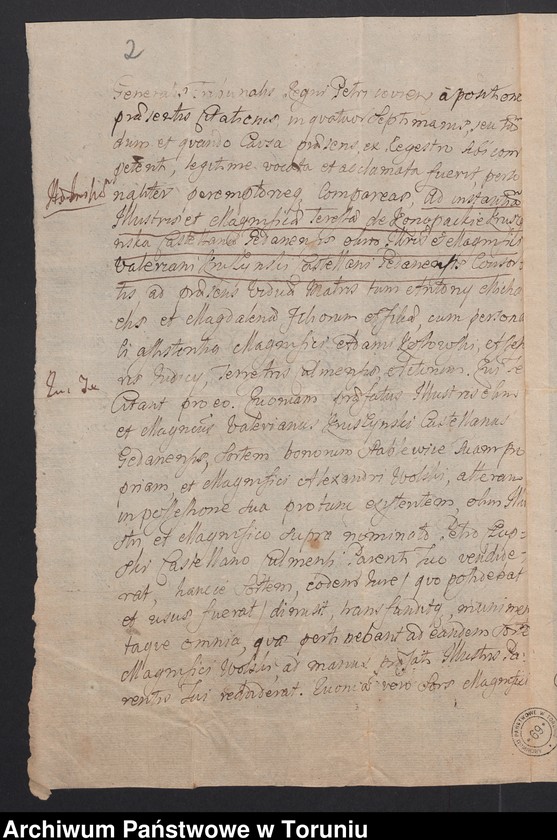 2
Generalis Tribunalis Regni Petricovien a positione
præsentis Citationis in quatuor Septimanis, seu tu
dum et quando Causa præsens ex Regestro sibi com
petenti, legitime vocata et acclamata fuerit, perso
naliter peremptorieq Compareas, Ad instantiam
Illustris et Magnificæ Teresiæ de Konopackie Krus
inska Castellanæ Gedanensis olim Illris et Magnifici
Valeriani Kruszynski Castellani Gedanensis Consor
tis ad præsens Viduæ Matris tum Antony Micha
elis et Magdalenæ Filiorum et filiæ cum persona
li assistentia Magnifici Adami et
ris Judicis, Terrestris Culmensis Actorum. Qui te
Citant pro eo. Quoniam præfatus Illustris olim
et Magnificus Valerianus Kruszynski Castellanus
Gedanensis, Sortem bonorum Stablewice Suam pro
priam, et Magnifici Alexandri Wolski, alteram
in possessione sua pro tunc existentem, olim Illu
stri et Magnifico supra nominato Petro
Castellano Culmensi Parenti Tuo vendide
rat, hancce Sortem, eodem Jure, quo possidebat
et usus fuerat, dimisit, transfunditq, munimen
taque omnia, quæ pertinebant ad eandem Sortem
Magnifici Wolski ad manus præfati Illustris Pa
rentis Tui reddiderat. Quoniam vero Sors Magnifici
69
Archiwum Państwowe w Toruniu